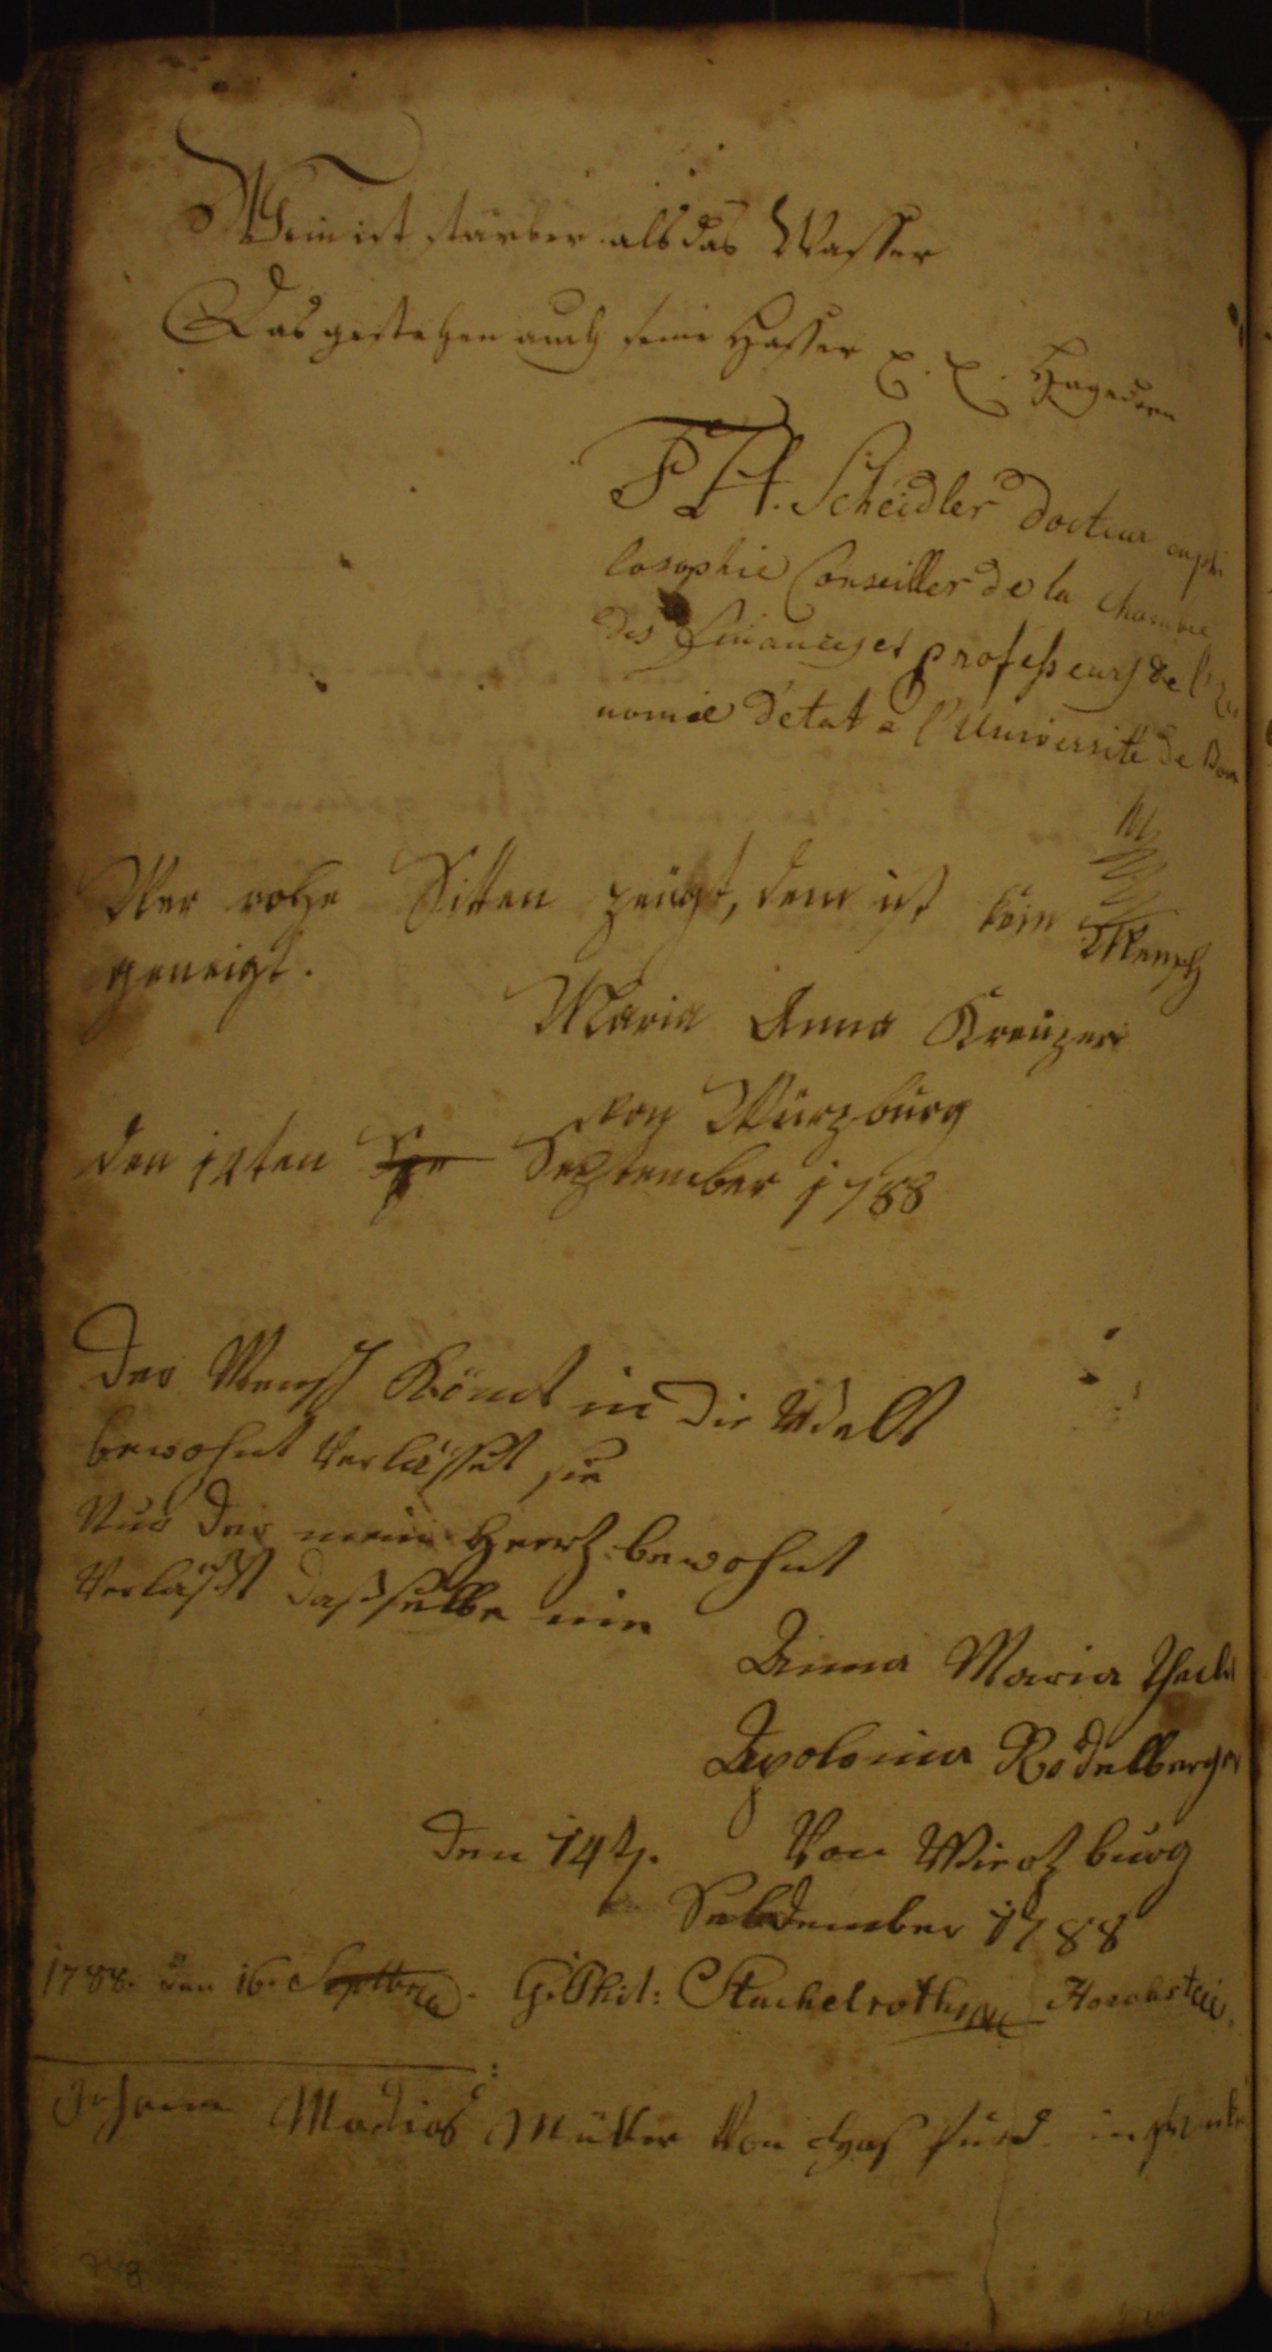 Wein ist stärker als das Wasser
Das gestehen auch seine Hasser Hagedorn
Scheidler Docteur en phi
losophie Conseiller de la Chambre
des finances et professeurs de l'
nomie d'etat a l'Université de Bon
Wer rohe Sitten zeügt, dem ist kein Mensch
geneigt.
Maria Anna Kreuzer
von Würzburg
den 12ten September 1788
Der Mensch Kömt in die Welt
bewohnt Verlässet sie
Nur der mein Hertz bewohnt
Verläst dasselbe nie
Anna Maria
Apolonia Rödelberger
den 14t. Von Wirtzburg
Sebdember 1788
1788. den 16. Septbr. G. Phil: Stachelroth
Johann Madias Müller Von Hasfurd in